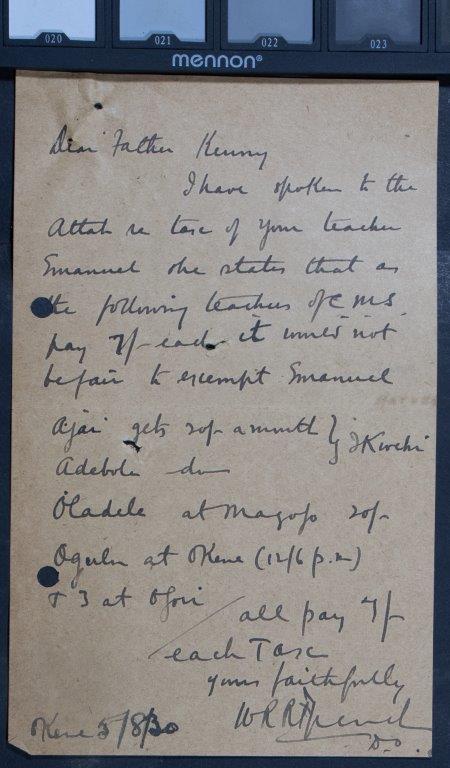 020 021 022 023
mennon®
Dear Father Kenny
I have spoken to the
Attah re tax of your teacher
Emanuel & he states that as
the following teachers of C.M.S.
pay 7/- each it would not
be fair to exempt Emanuel
Ajai gets 20/- a month }
Adebola do
Oladele at Magofo 20/-
at Okene (12/6 p.m)
& 3 at Ogori
all pay 7/-
each Tax
yours faithfully
D.O.
Okene 5/8/30